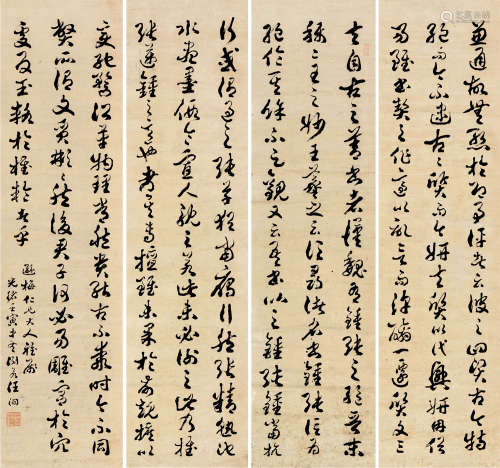 兼通故無慙於即事評者云彼之四賢古今特
絕而今不逮古古質而今妍夫質以代興妍因俗
易雖書契之作適以記言而淳醨一遷質文三
夫自古之善書者漢魏有鍾張之絕晉末
稱二王之妙王羲之云頃尋諸名書鍾張信為
絕倫其餘不足觀又云吾書比之鍾張鍾當抗
行或謂過之張草猶當雁行然張精熟池
水盡墨假令寡人耽之若此未必謝之此乃推
張邁鍾之意也考其專擅雖未果於前規摭以
變馳騖沿革物理常然貴能古不乖時今不同
弊所謂文質彬彬然後君子何必易雕宮於穴
處反玉輅於椎輪者乎
梅仁兄大人雅屬
光緒壬寅